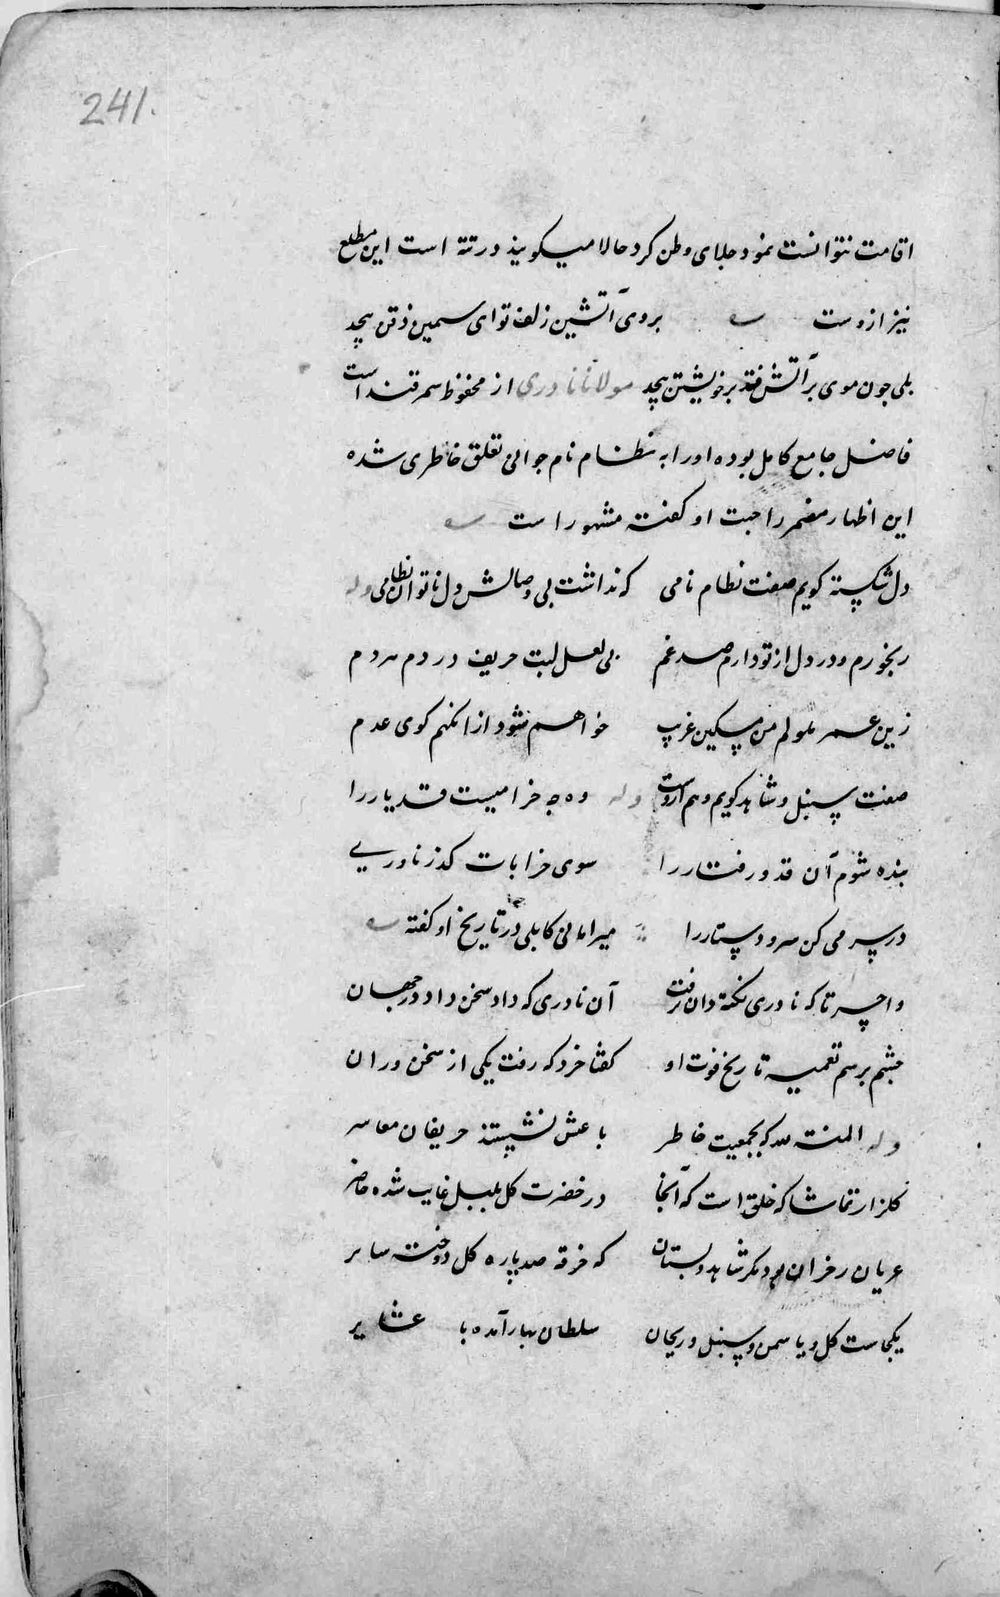 241.
اقامت نتوانست نمود جلای وطن کرد حالا میکویند در تته است این مطلع
نیز ازوست بروی آتشین زلف تو ای سیمین ذقن پیچد
بلی جون موی بر آتش فتد بر خویشتن پیچد مولانا نادری از محفوظ سمرقند است
فاضل جامع کامل بوده اورا به نظام نام جوانی تعلق خاطری شده
این اظهار مضمر را جهت او کفته مشهور است
دل شکسته کویم صفت نظام نامی که نداشت بی وصالش دل ناتوان نظامی وله
رنجورم ودر دل از تو دارم صد غم بی لعل لبت حریف دردم هر دم
زین عمر ملولم من مسکین غریب خواهم شود آرامکهم کوی عدم
صفت سنبل و شاهد کویم وهم اروست وله وه چه خرامیست قد یار را
بنده شوم آن قد ورفتار را سوی خرابات کذر نادری
در سر می کن سر و دستار را میر امانی کابلی در تاریخ او کفته
واحسرتا که نادری نکته دان رفت آن نادری که داد سخن داد در جهان
جستم برسم تعمیه تاریخ فوت او کفتا خرد که رفت یکی از سخن وران
وله المنته لله که بجمعیت خاطر با عش نشستند حریفان معاسر
کلزار تماشاکه خلق است که آنجا در خضرت کل بلبل غایب شده حاضر
عریان زخزان بود مکر شاهد بستان که خرقه صد پاره کل دوخته ساتر
یکجاست کل و یاسمن و سنبل وریحان سلطان بهار آمده با عشایر